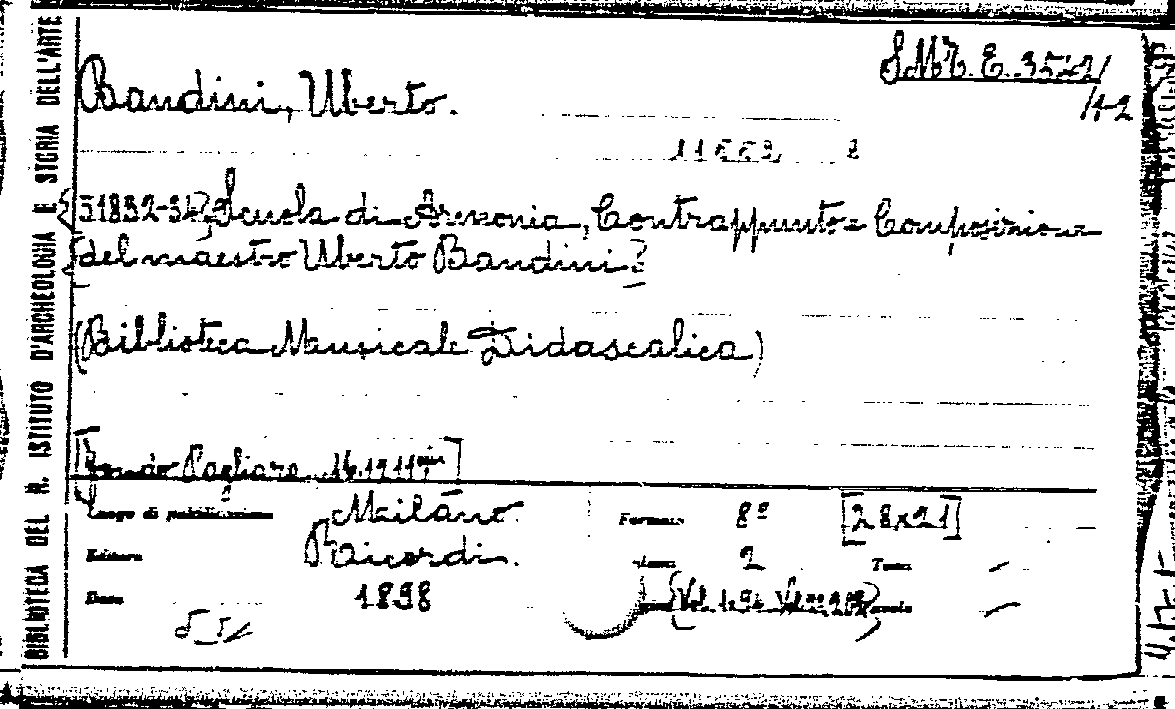 BIBLIOTECA DEL R. ISTITUTO D'ARCHEOLOGIA E STORIA DELL'ARTE
Bandini, Uberto.
/1-2
Scuola di Armonia, Contrappunto e Composizione
del maestro Uberto Bandini
(Biblioteca Musicale Didascalica)
[Fondo Pagliara
Luogo di pubblicazione Milano. Formato 8º [28x21]
Editore Ricordi. 2 Tomi —
Data 1898